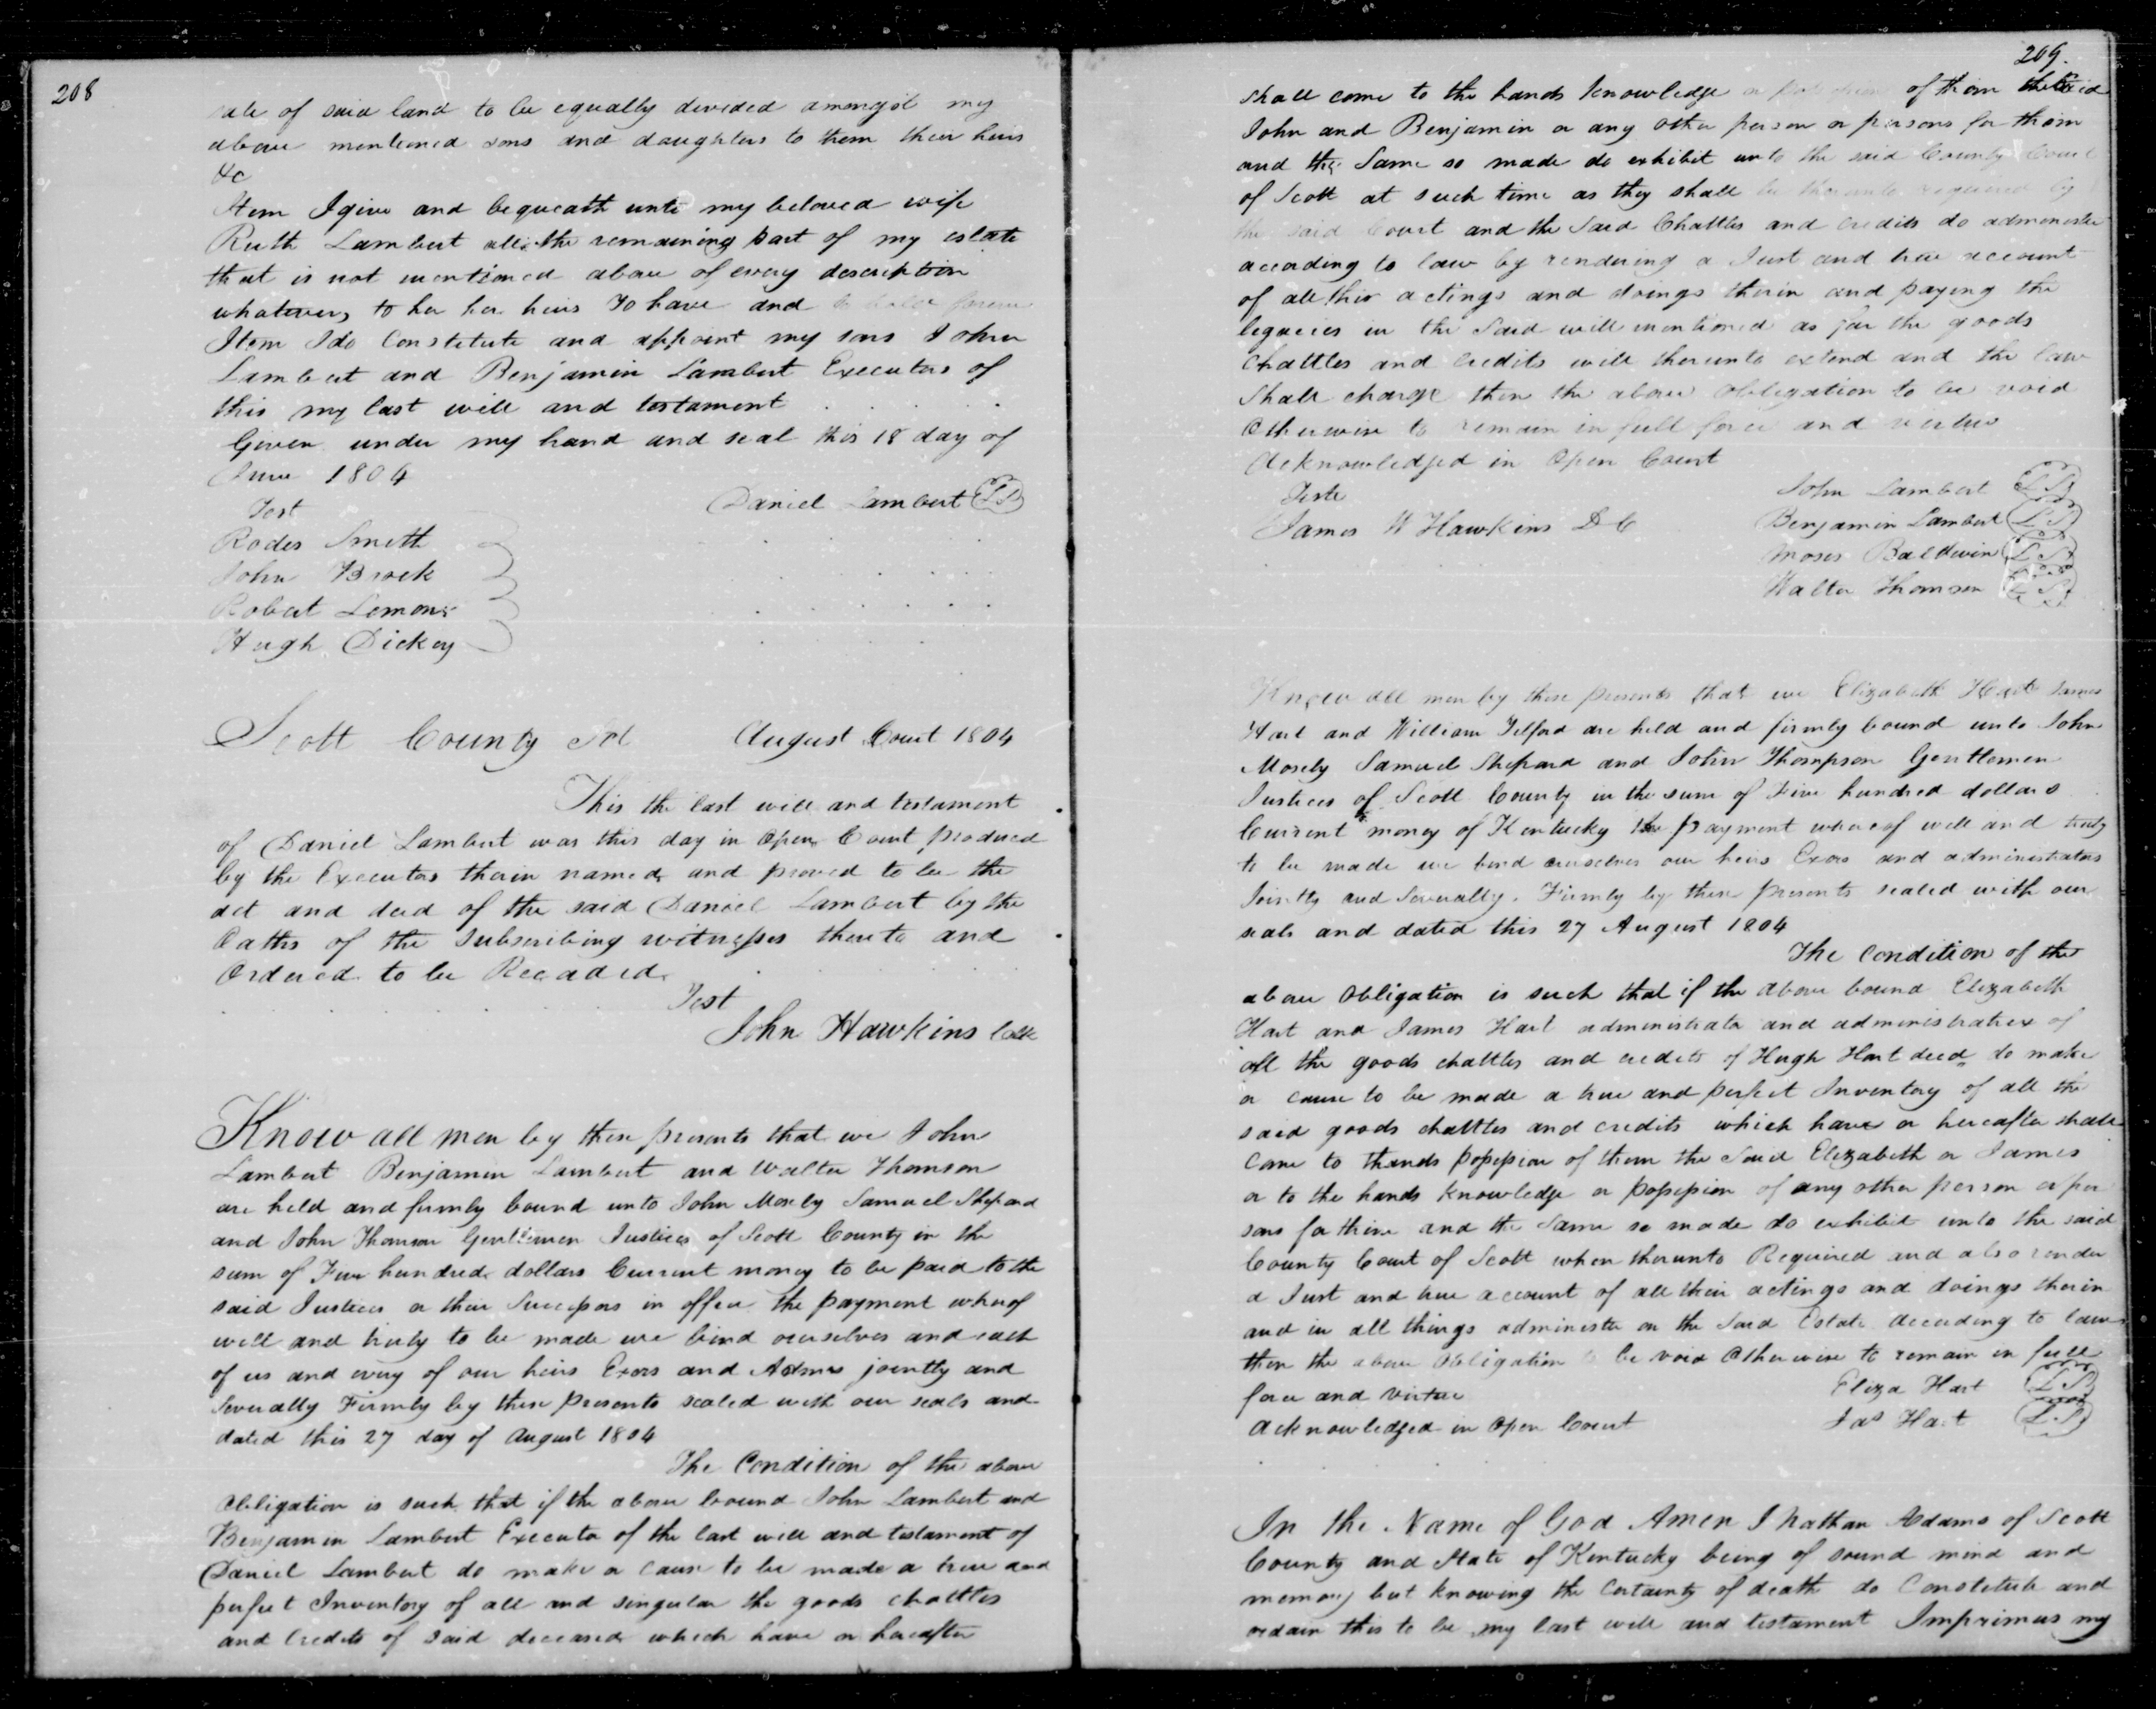 208
sale of said land to be equally devided amongst my
above mentioned sons and daughters to them their heirs
&c
Item I give and bequeath unto my beloved wife
Ruth Lambert all the remaining part of my estate
that is not mentioned above of every description
whatever, to her her heirs To have and to hold forever
Item I do Constitute and appoint my sons John
Lambert and Benjamin Lambert Executors of
this my last will and testament
Given under my hand and seal this 18 day of
June 1804
Test
Daniel Lambert LS
Rodes Smith
John Brock
Robert Lemon
Hugh Dickey
Scott County Sct August Court 1804
This the last will and testament
of Daniel Lambert was this day in Open Court produced
by the Executors therein named and proved to be the
act and deed of the said Daniel Lambert by the
Oaths of the Subscribing witnesses thereto and
Ordered to be Recorded
Test
John Hawkins Clk
Know all men by these presents that we John
Lambert Benjamin Lambert and Walter Thomson
are held and firmly bound unto John Mosely Samuel Shepard
and John Thomson Gentlemen Justices of Scott County in the
sum of Five hundred dollars Current money to be paid to the
said Justices or their Successors in office the payment whereof
well and truly to be made we bind ourselves and each
of us and every of our heirs Exors and Admrs jointly and
Severally Firmly by these presents sealed with our seals and
dated this 27 day of August 1804
The Condition of the above
Obligation is such that if the above bound John Lambert and
Benjamin Lambert Executor of the last will and testament of
Daniel Lambert do make or cause to be made a true and
perfect Inventory of all and singular the goods chattles
and Credits of said deceased which have or hereafter
209.
shall come to the hands knowledge or possession of them the said
John and Benjamin or any other person or persons for them
and the Same so made do exhibit unto the said County Court
of Scott at such time as they shall be thereunto required by
the said Court and the Said Chattles and credits do administer
according to law by rendering a Just and true account
of all their actings and doings therein and paying the
legacies in the Said will mentioned as far the goods
Chattles and Credits will thereunto extend and the law
Shall charge then the above Obligation to be void
Otherwise to remain in full force and virtue
Acknowledged in Open Court
Teste
James W Hawkins D C
John Lambert LS
Benjamin Lambert LS
Moses Baldwin LS
Walter Thomson LS
Know all men by these presents that we Elizabeth Hart James
Hart and William Telford are held and firmly bound unto John
Mosely Samuel Shepard and John Thompson Gentlemen
Justices of Scott County in the sum of Five hundred dollars
Current money of Kentucky the payment whereof well and truly
to be made we bind ourselves our heirs Exors and administrators
Jointly and Severally. Firmly by these presents sealed with our
seals and dated this 27 August 1804
The Condition of the
above Obligation is such that if the above bound Elizabeth
Hart and James Hart administrator and administratrix of
all the goods chattles and credits of Hugh Hart decd do make
or cause to be made a true and perfect Inventory of all the
said goods chattles and credits which have or hereafter shall
Come to thands possession of them the Said Elizabeth or James
or to the hands knowledge or possession of any other person or per
sons for them and the Same so made do exhibit unto the said
County Court of Scott when thereunto Required and also render
a Just and true account of all their actings and doings therein
and in all things administer on the Said Estate according to law
then the above Obligation to be void Otherwise to remain in full
force and virtue
Eliza Hart LS
Acknowledged in Open Court
Jas Hart LS
In the Name of God Amen I Nathan Adams of Scott
County and State of Kentucky being of sound mind and
memory but knowing the Certainty of death do Constitute and
ordain this to be my last will and testament Imprimus my